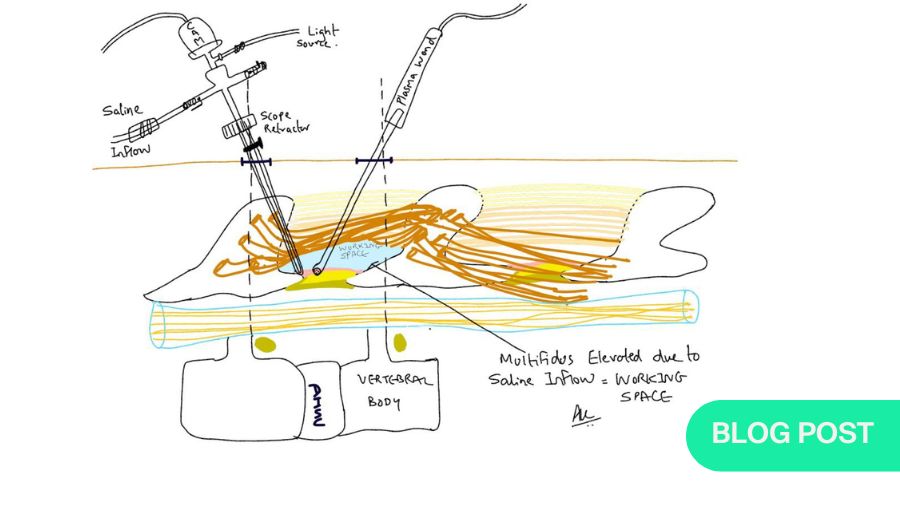 CAM
Light
Source.
Plasma Wand
Saline
Inflow
Scope
Retractor
WORKING
SPACE
VERTEBRAL
BODY
Multifidus Elevated due to
Saline Inflow = WORKING
SPACE
BLOG POST